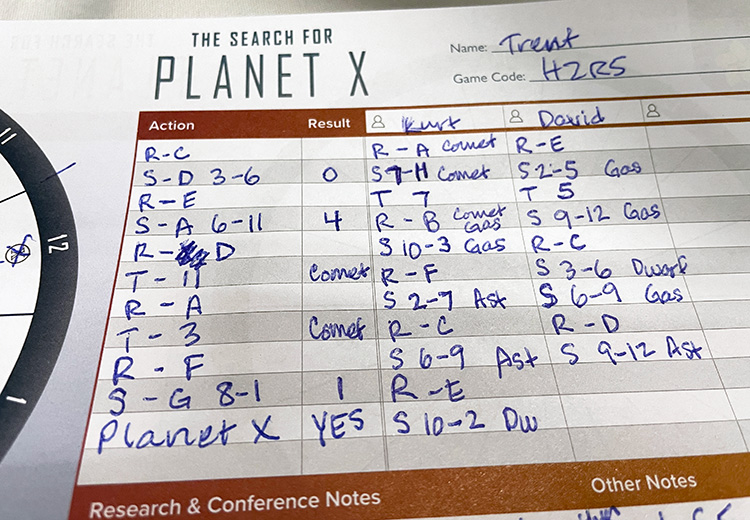 THE SEARCH FOR
PLANET X
Name: Trent
Game Code: HZRS
Action Result Kurt David
R-C R-A Comet R-E
S-D 3-6 0 S 7-11 Comet S 2-5 Gas
R-E T 7 T 5
S-A 6-11 4 R-B Comet Gas S 9-12 Gas
R- D S 10-3 Gas R-C
T-11 Comet R-F S 3-6 Dwarf
R-A S 2-7 Ast S 6-9 Gas
T-3 Comet R-C R-D
R-F S 6-9 Ast S 9-12 Ast
S-G 8-1 1 R-E
Planet X YES S 10-2 Dw
11
12
1
Research & Conference Notes Other Notes